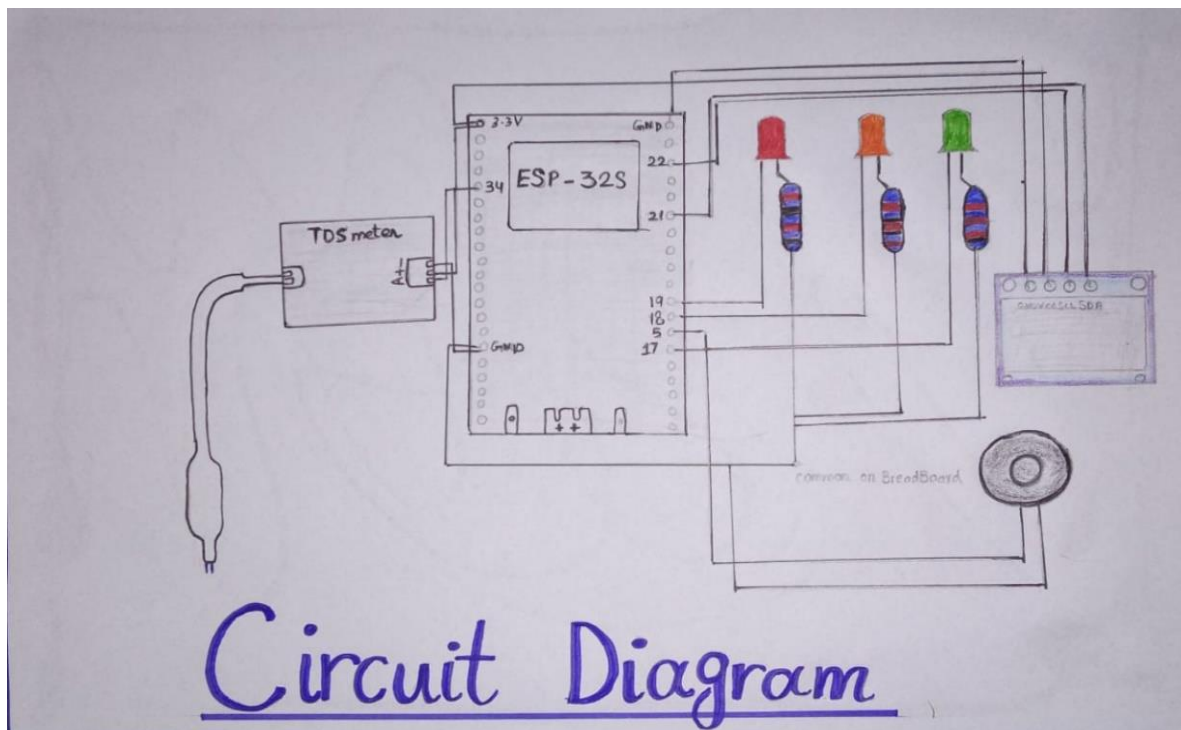 3.3V
GND
34
ESP-32S
22
21
TDS meter
A+-
19
18
5
17
GND
++
common on BreadBoard
Circuit Diagram